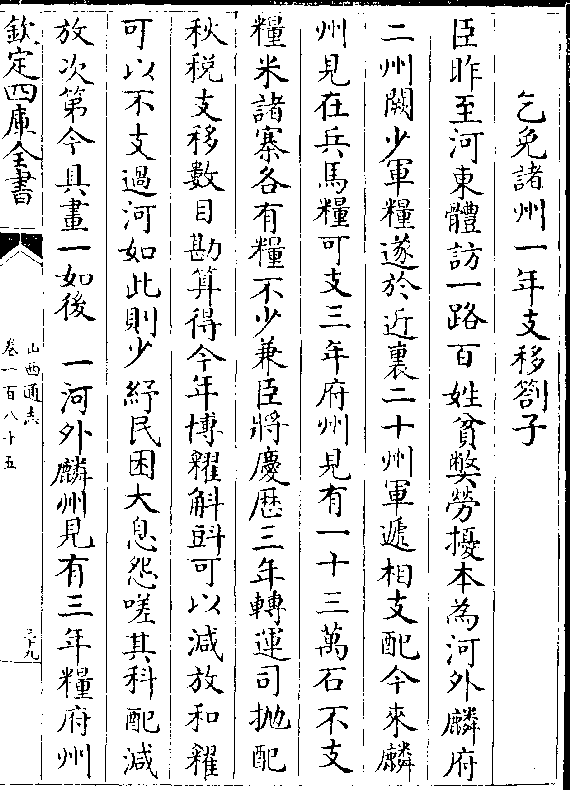 乞免諸州一年支移劄子
臣昨至河東體訪一路百姓貧弊勞擾本為河外麟府
二州闕少軍糧遂於近裏二十州軍遞相支配今來麟
州見在兵馬糧可支三年府州見有一十三萬石不支
糧米諸寨各有糧不少兼臣將慶厯三年轉運司抛配
秋税支移數目勘算得今年博糴斛㪷可以減放和糴
可以不支過河如此則少紓民困大息怨嗟其科配減
放次第今具畫一如後　一河外麟州見有三年糧府州
欽定四庫全書
山西通志
卷一百八十五
三十九